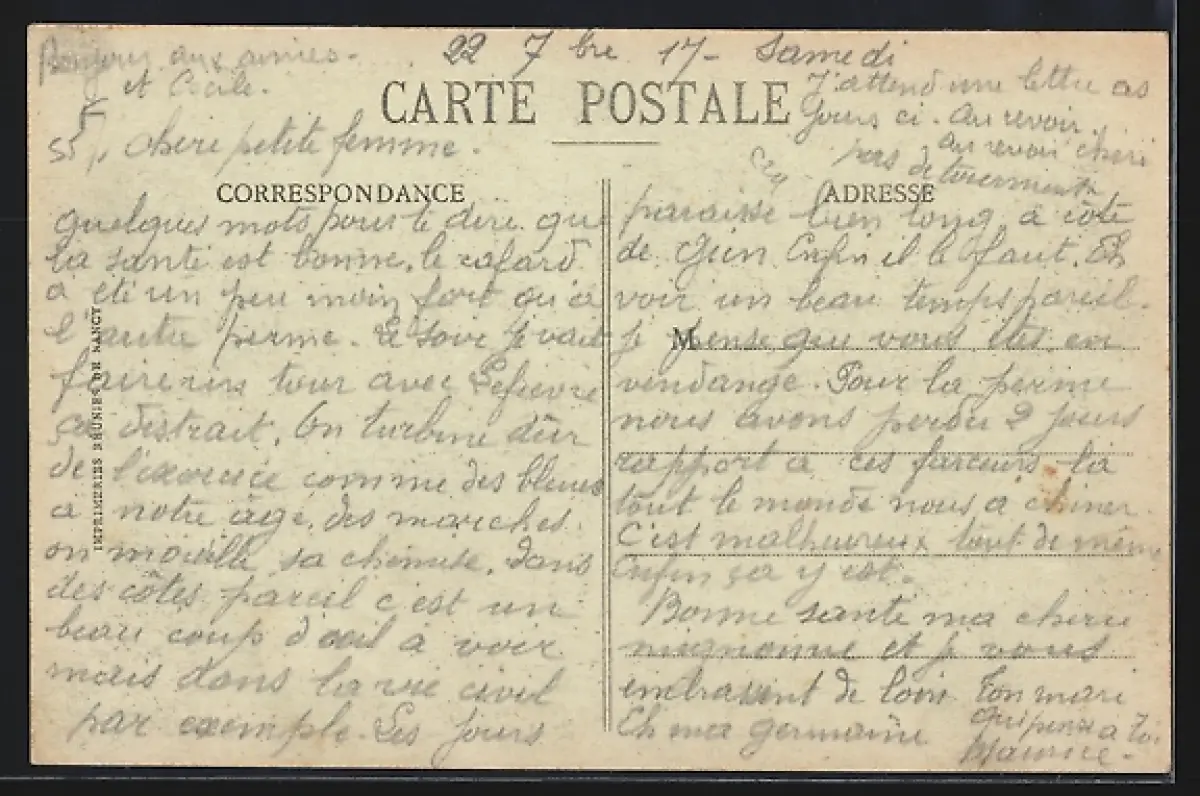 22 7bre 17 - Samedi
Bonjour aux amies.
et Cecile.
CARTE POSTALE
J'attend une lettre ces
jours ci. Au revoir.
Au revoir cheri
chere petite femme.
CORRESPONDANCE
quelques mots pour te dire que
la santé est bonne, le cafard
a été un peu moin fort qu'a
l'autre perme. Le soir je vait
faire un tour avec Lefievre
ça distrait. On turbine dur
de l'exercice comme des bleus
a notre âge, des marches
on mouille sa chemise. Dans
des côtes pareil c'est un
beau coup d'oeil a voir
mais dans la vie civil
par exemple. Les jours
ADRESSE
paraisse bien long a côté
de Gien. Enfin il le faut. Et
voir un beau temps pareil.
M
je pense que vous êtes en
vendange. Pour la perme
nous avons perdu 2 jours
rapport a ces farceurs la
tout le monde nous a chiner.
C'est malheureux tout de même
Enfin ça y est.
Bonne santé ma cherie
mignonne et je vous
embrassent de loin. Ton mari
qui pense a Toi
Eh ma Germaine
Maurice.
IMPRIMERIES RÉUNIES DE NANCY